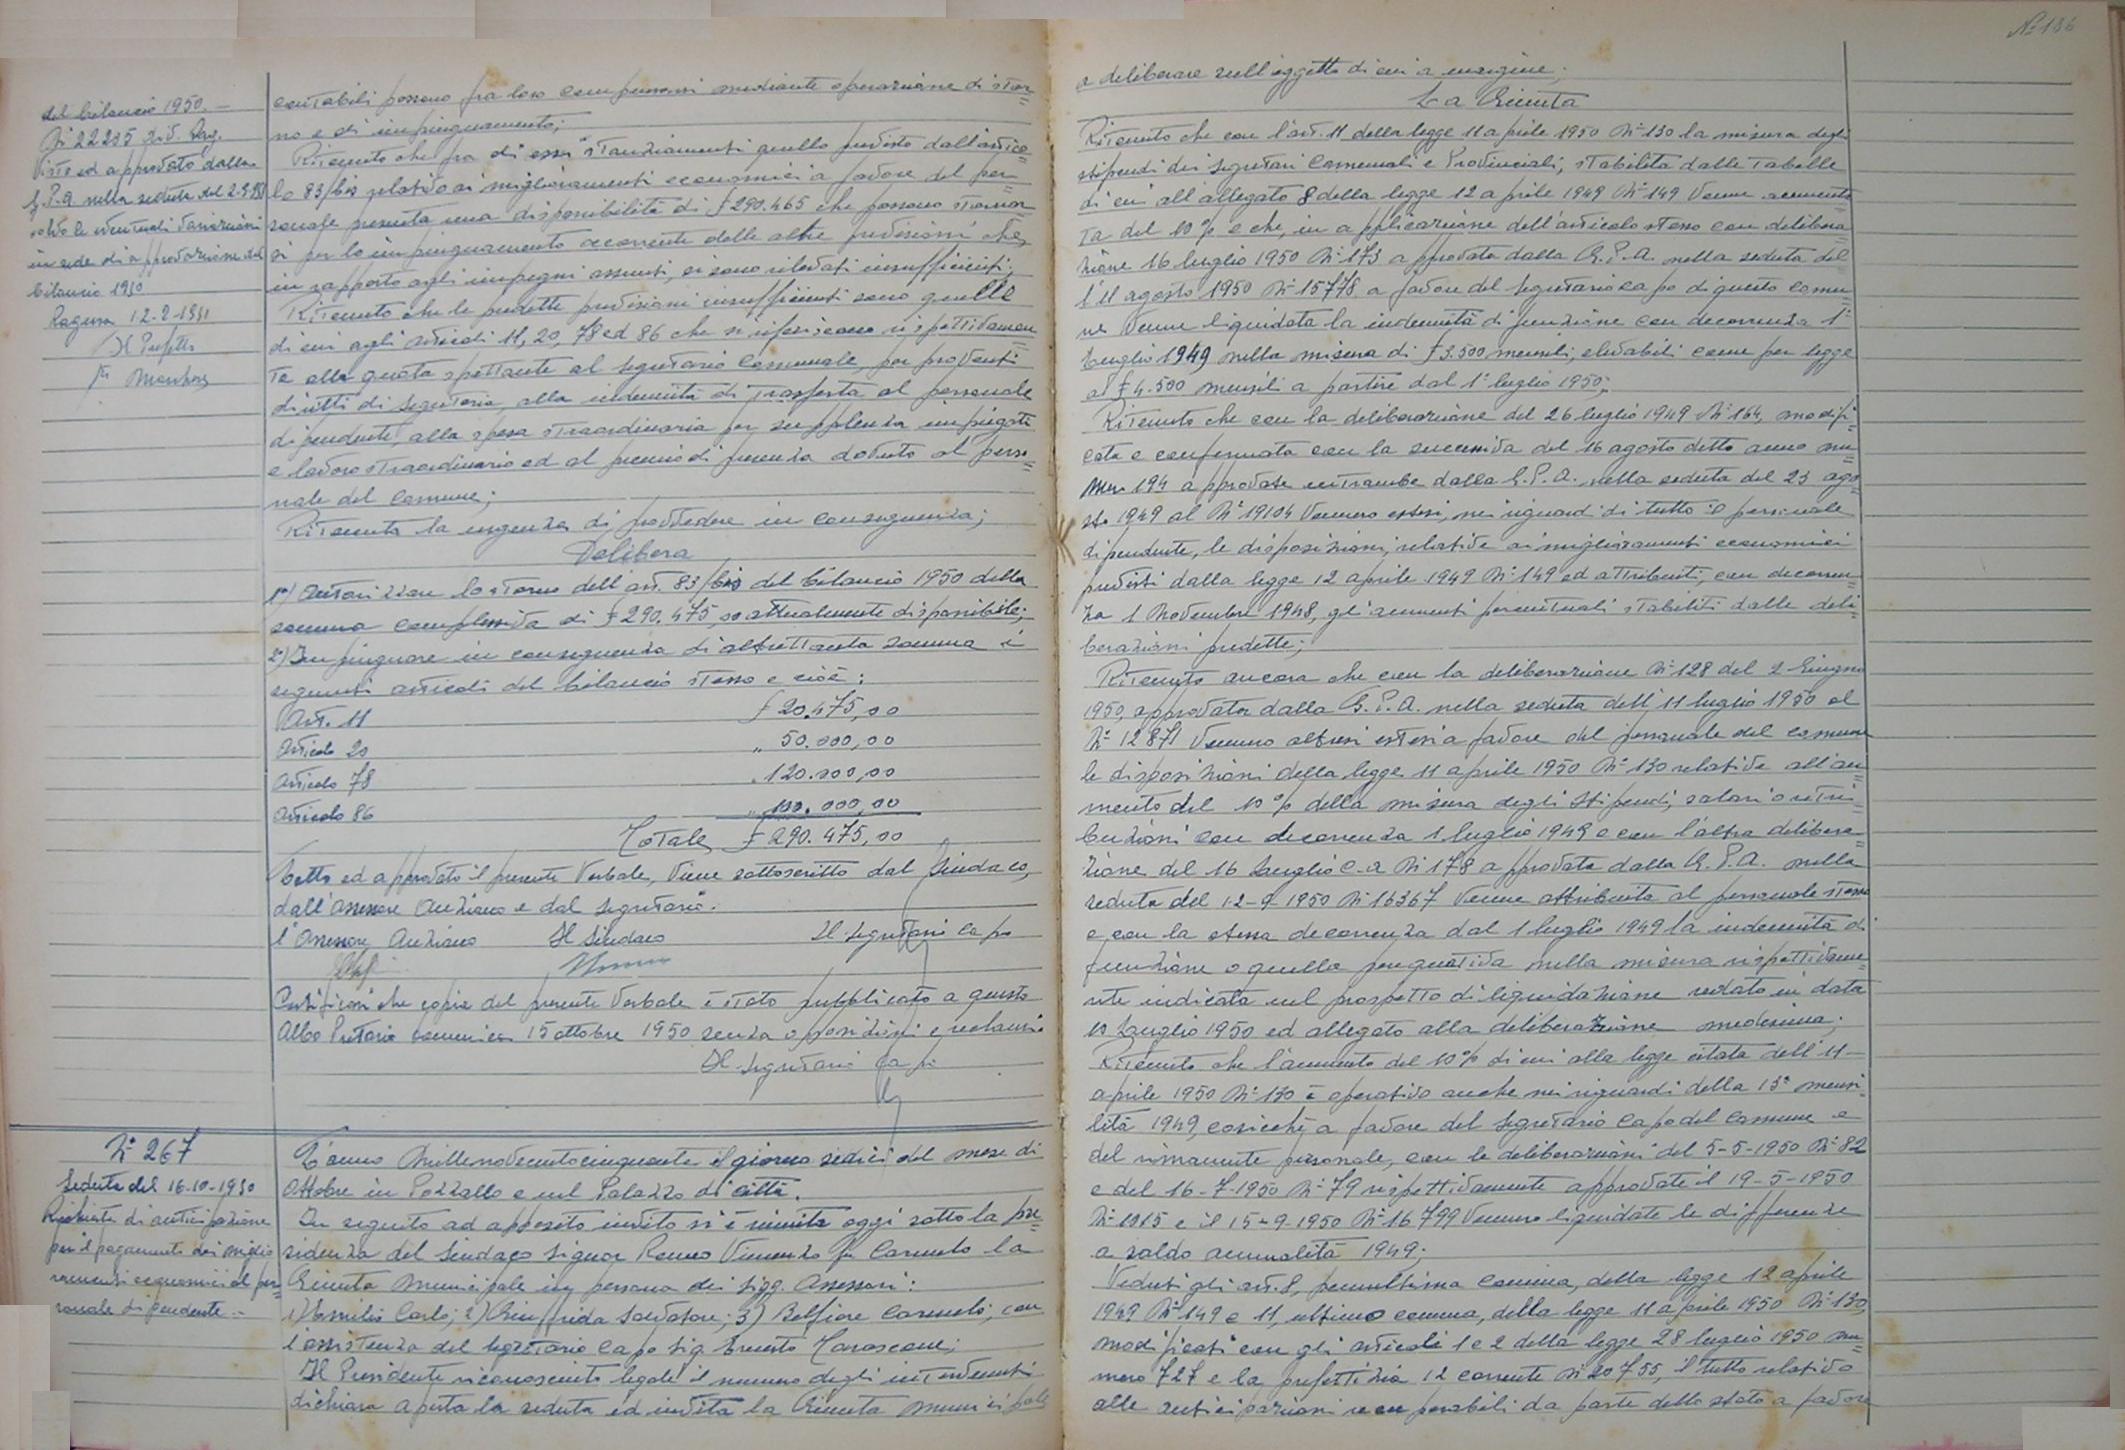 del bilancio 1950. —
N° 22235 Div. Rag.
Visto ed approvato dalla
G.P.A. nella seduta del
salvo le eventuali variazioni
in sede di approvazione del
bilancio 1950
Ragusa 12-2-1951
Il Prefetto
contabili possono fra loro compensarsi mediante operazione di stor=
no e di impinguamento;
Ritenuto che fra di essi stanziamenti quello previsto dall'artico=
lo 83/bis relativo ai miglioramenti economici a favore del per=
sonale presenta una disponibilità di £ 290.465 che possono stornar=
si per lo impinguamento occorrente delle altre previsioni che,
in rapporto agli impegni assunti, si sono rilevati insufficienti;
Ritenuto che le predette previsioni insufficienti sono quelle
di cui agli articoli 11, 20, 78 ed 86 che si riferiscono rispettivamen=
te alla quota spettante al segretario Comunale, per proventi
diritti di segreteria, alla indennità di trasferta al personale
dipendente, alla spesa straordinaria per supplenza impiegati
e lavoro straordinario ed al premio di presenza dovuto al perso=
nale del Comune;
Ritenuta la urgenza di provvedere in conseguenza;
Delibera
1°) Autorizzare lo storno dell'art. 83/bis del bilancio 1950 della
somma complessiva di £ 290.475,00 attualmente disponibile;
2°) Impinguare in conseguenza di altrettanta somma i
seguenti articoli del bilancio stesso e cioè:
Art. 11 £ 20.475,00
Articolo 20 " 50.000,00
Articolo 78 " 120.000,00
Articolo 86 " 100.000,00
Totale £ 290.475,00
Letto ed approvato il presente Verbale, viene sottoscritto dal Sindaco,
dall'Assessore Anziano e dal Segretario.
L'Assessore Anziano Il Sindaco Il Segretario Capo
Certificasi che copia del presente Verbale è stato pubblicato a questo
Albo Pretorio domenica 15 ottobre 1950 senza opposizioni e reclami
Il Segretario Capo
N° 267
Seduta del 16-10-1950
Richiesta di anticipazione
per il pagamento dei miglio
ramenti economici al per=
sonale dipendente. —
L'anno Millenovecentocinquanta il giorno sedici del mese di
Ottobre in Pozzallo e nel Palazzo di città.
In seguito ad apposito invito si è riunita oggi sotto la pre=
sidenza del Sindaco Signor Romeo Vincenzo fu Carmelo la
Giunta Municipale in persona dei Sigg. Assessori:
1) Emilio Carlo; 2) Giunfrida Salvatore; 3) Belfiore Carmelo; con
l'assistenza del Segretario Capo Sig. Ernesto
Il Presidente riconosciuto legale il numero degli intervenuti
dichiara aperta la seduta ed invita la Giunta Municipale
N° 136
a deliberare sull'oggetto di cui a margine;
La Giunta
Ritenuto che con l'art. 11 della legge 11 aprile 1950 N° 130 la misura degli
stipendi dei Segretari Comunali e Provinciali, stabilita dalle tabelle
di cui all'allegato 8 della legge 12 aprile 1949 N° 149 venne aumenta
ta del 10% e che, in applicazione dell'articolo stesso con delibera
zione 16 luglio 1950 N° 173 approvata dalla G.P.A. nella seduta del
l'11 agosto 1950 N° 15778 a favore del Segretario capo di questo Comu=
ne venne liquidata la indennità di funzione con decorrenza 1°
Luglio 1949 nella misura di £ 3.500 mensili, elevabili come per legge
a £ 4.500 mensili a partire dal 1° luglio 1950;
Ritenuto che con la deliberazione del 26 luglio 1949 N° 164, modifi=
cata e confermata con la successiva del 16 agosto detto anno nu=
mero 194 approvate entrambe dalla G.P.A. nella seduta del 23 ago=
sto 1949 al N° 19104 vennero estesi, nei riguardi di tutto il personale
dipendente, le disposizioni, relative ai miglioramenti economici
previsti dalla legge 12 aprile 1949 N° 149 ed attribuiti, con decorren=
za 1 Novembre 1948, gl'aumenti percentuali stabiliti dalle deli=
berazioni predette;
Ritenuto ancora che con la deliberazione N° 128 del 2 Giugno
1950, approvata dalla G.P.A. nella seduta dell'11 luglio 1950 al
N° 12871 vennero altresì estesi a favore del personale del comune
le disposizioni della legge 11 aprile 1950 N° 130 relative all'au=
mento del 10% della misura degli stipendi, salari o retri=
buzioni con decorrenza 1 luglio 1949 e con l'altra delibera=
zione del 16 Luglio c.a N° 178 approvata dalla G.P.A. nella
seduta del 12-9-1950 N° 16367 venne attribuita al personale stesso
e con la stessa decorrenza dal 1 luglio 1949 la indennità di
funzione o quella perequativa nella misura rispettivame=
nte indicata nel prospetto di liquidazione redato in data
10 Luglio 1950 ed allegato alla deliberazione medesima;
Ritenuto che l'aumento del 10% di cui alla legge citata dell'11-
aprile 1950 N° 130 è operativo anche nei riguardi della 13° mensi=
lità 1949, cosicché a favore del Segretario Capo del Comune e
del rimanente personale, con le deliberazioni del 5-5-1950 N° 82
e del 16-7-1950 N° 79 rispettivamente approvate il 19-5-1950
N° 1915 e il 15-9-1950 N° 16799 vennero liquidate le differenze
a saldo annualità 1949;
Veduti gli art. 8, penultimo comma, della legge 12 aprile
1949 N° 149 e 11, ultimo comma, della legge 11 aprile 1950 N° 130,
modificati con gli articoli 1 e 2 della legge 28 luglio 1950 nu=
mero 727 e la prefettizia 12 corrente N° 20755, il tutto relativo
alle anticipazioni recuperabili da parte dello stato a favore